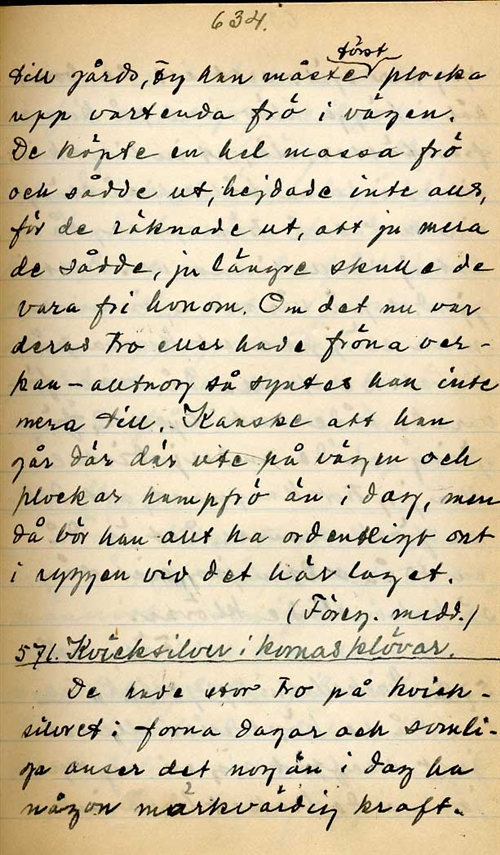 634.
först
till gårds, ty han måste plocka
upp vartenda frö i vägen.
De köpte en hel massa frö
och sådde ut, hejdade inte alls,
för de räknade ut, att ju mera
de sådde, ju längre skulle de
vara fri honom. Om det nu var
deras tro eller hade fröna ver-
kan – alltnog så syntes han inte
mera till. Kanske att han
går där där ute på vägen och
plockar hampfrö än i dag, men
då bör han allt ha ordentligt ont
i ryggen vid det här laget.
(Föreg. medd.)
571. Kvicksilver i kornas klövar.
De hade stor tro på kvick-
silvret i forna dagar och somli-
ga anser det nog än i dag ha
någon märkvärdig kraft.